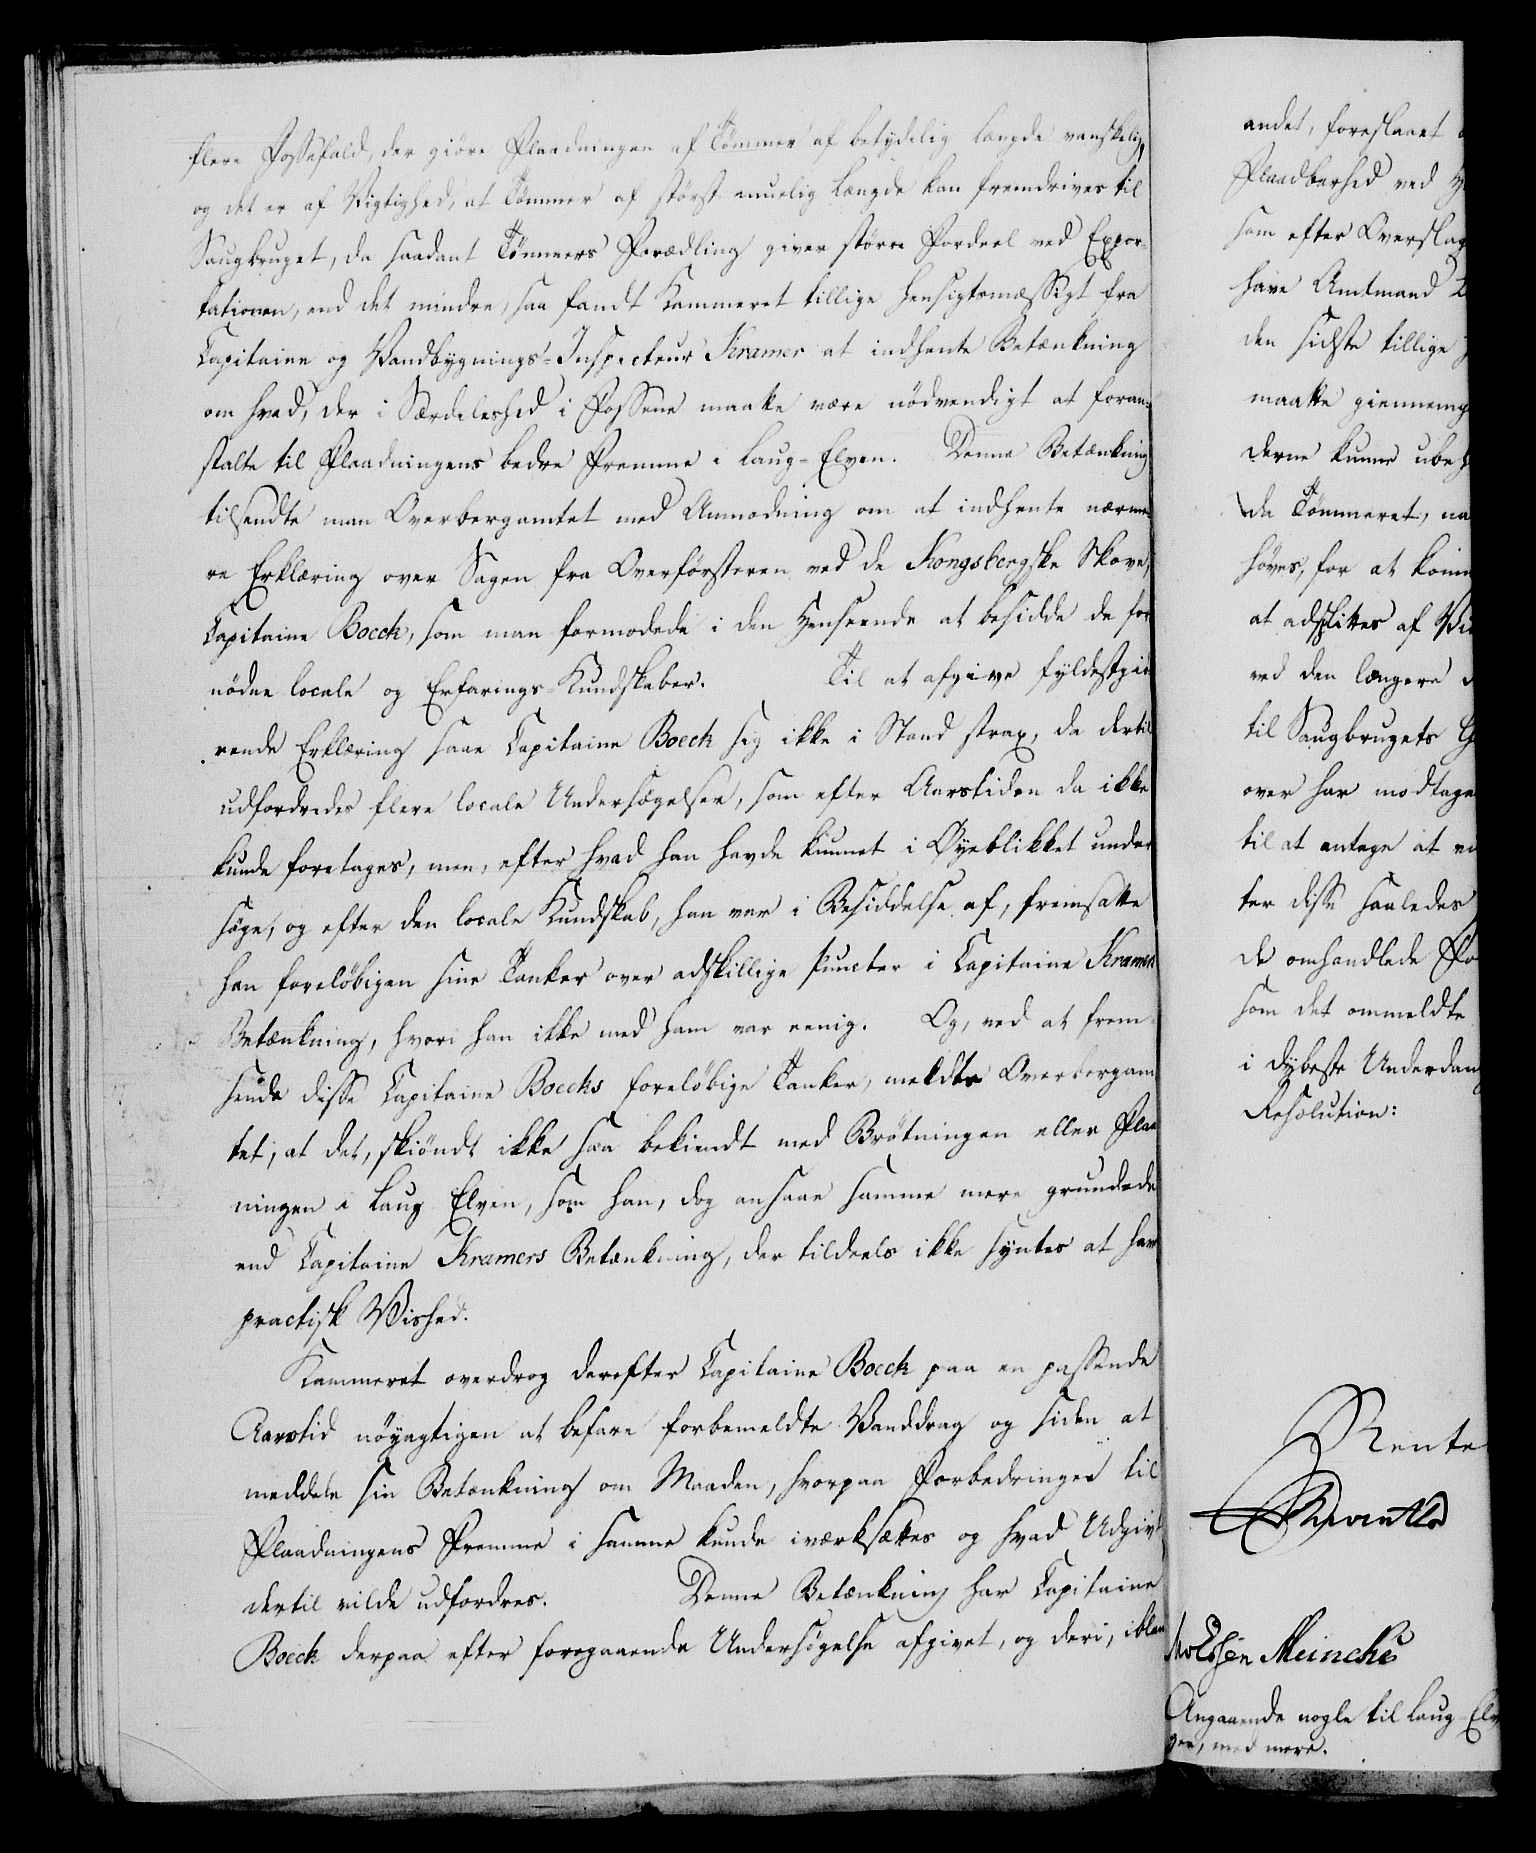 flere Fossefald, der giöre Flaadningen af Tömmer af betydelig Længde vanskelig,
og det er af Vigtighed, at Tömmer af störst muelig Længde kan fremdrives til
Saugbruget, da saadant Tömmers Forædling giver större Fordeel ved Expor-
tationen, end det mindre, saa fandt Kammeret tillige hensigtsmæssigt fra
Capitaine og Vandbygnings-Inspecteur Kramer at indhente Betænkning
om hvad, der i Særdeleshed i Fossene maatte være nödvendigt at foran-
stalte til Flaadningens bedre Fremme i Laug-Elven. Denne Betænkning
tilsendte man Overbergamtet med Anmodning om at indhente nærme-
re Erklæring over Sagen fra Overförsteren ved de Kongsbergske Skove,
Capitaine Boeck, som man formodede i den Henseende at besidde de for
nödne locale og Erfarings-Kundskaber. Til at afgive fyldestgiö
rende Erklæring saae Capitaine Boeck sig ikke i Stand strax, da dertil
udfordredes flere locale Undersögelser, som efter Aarstiden da ikke
kunde foretages, men, efter hvad han havde kunnet i Øyeblikket under
söge, og efter den locale Kundskab, han var i Besiddelse af, fremsatte
han forelöbigen sine Tanker over adskillige Puncter i Capitaine Kramers
Betænkning, hvori han ikke med ham var eenig. Og, ved at frem-
sende disse Capitaine Boecks forelöbige Tanker, meldte Overbergam
tet, at det, skiöndt ikke saa bekiendt med Brötningen eller Flaa
ningen i Laug Elven, som han, dog ansaae samme mere grundede
end Capitaine Kramers Betænkning, der tildeels ikke syntes at have
practisk Vished.
Kammeret overdrog derefter Capitaine Boeck paa en passende
Aarstid nöyagtigen at befare forbemeldte Vanddrag og siden at
meddele sin Betænkning om Maaden, hvorpaa Forbedringer til
Flaadningens Fremme i samme kunde iværksættes og hvad Udgivt
dertil vilde udfordres. Denne Betænkning har Capitaine
Boeck derpaa efter foregaaende Undersögelse afgivet, og deri, iblan
andet, foreslaaet
Flaadbarhed ved
som efter Overslag
have Amtmand
den sidste tillige
maatte giennemg
derne kunne ube
da Tömmeret, na
höves, for at komm
at adsplittes af Vi
ved den længere
til Saugbrugets
over har modtage
til at antage at
ter disse saaledes
de omhandlede Fo
som det ommeldte
i dybeste Underdan
Resolution:
Rente
Meincke
Angaaende nogle til Laug-Elv
gen, med mere.